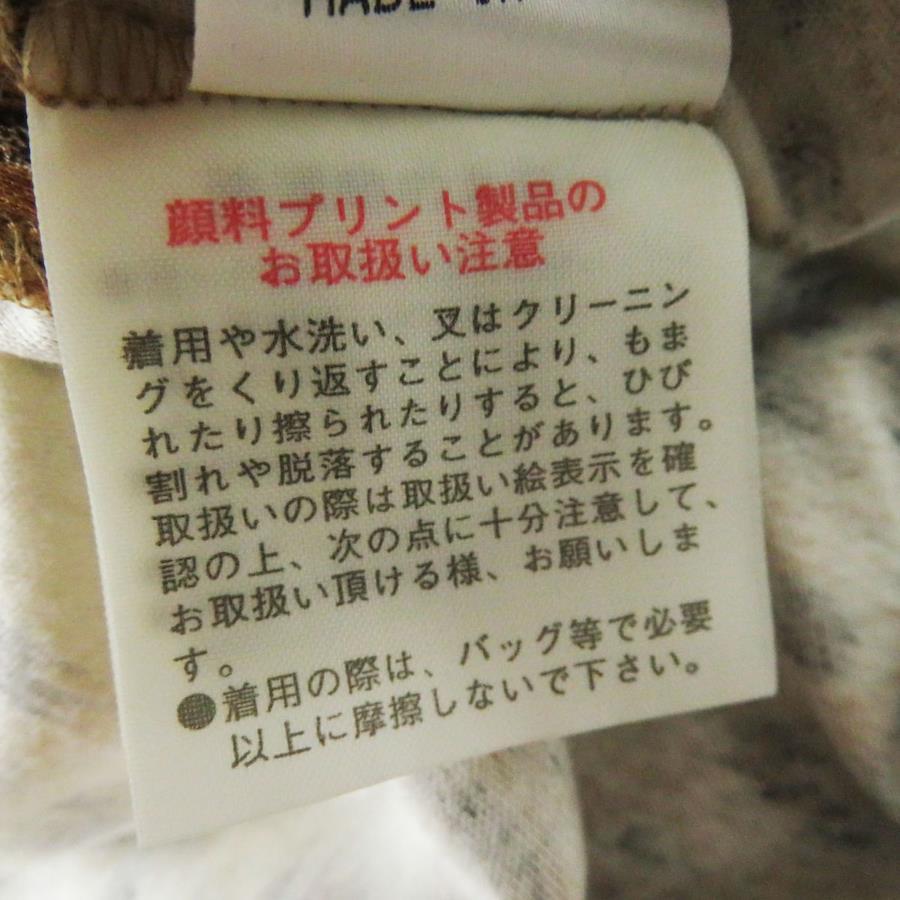 MADE
顔料プリント製品の
お取扱い注意
着用や水洗い、又はクリーニン
グをくり返すことにより、もま
れたり擦られたりすると、ひび
割れや脱落することがあります。
取扱いの際は取扱い絵表示を確
認の上、次の点に十分注意して、
お取扱い頂ける様、お願いしま
す。
●着用の際は、バッグ等で必要
以上に摩擦しないで下さい。